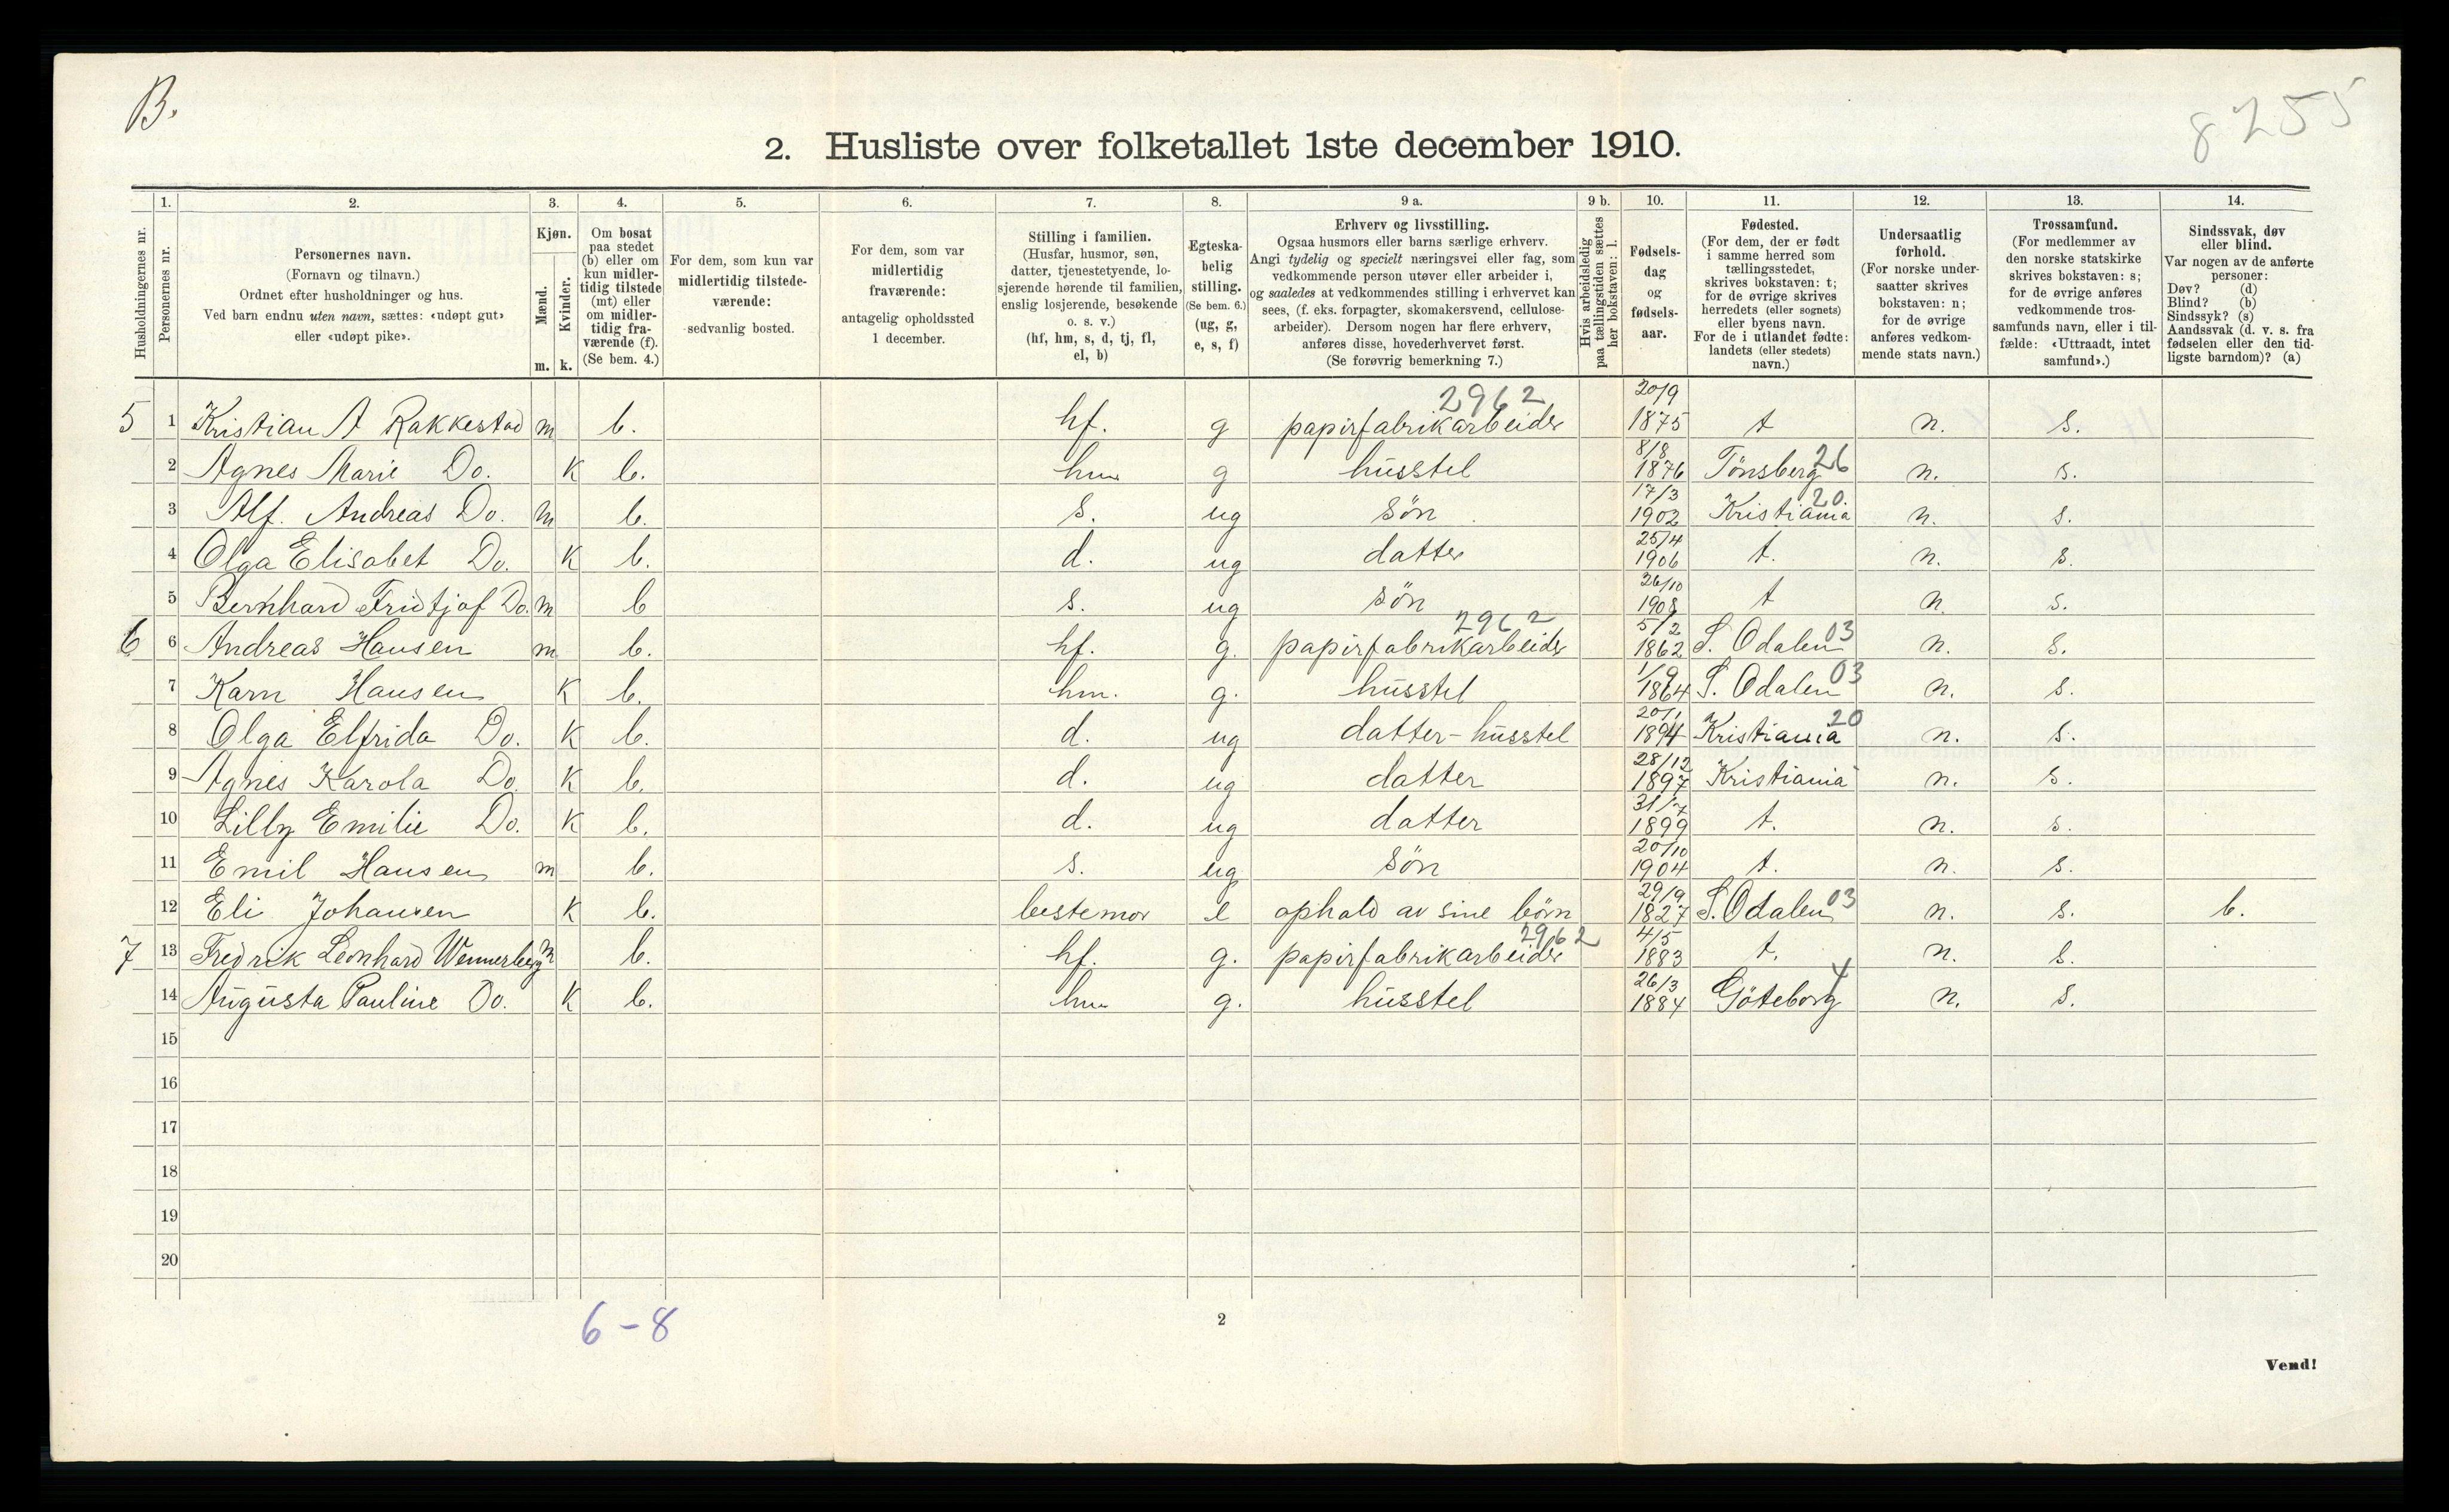 B.
8255
2. Husliste over folketallet 1ste december 1910.
Husholdningernes nr.
1. Personernes nr.
2. Personernes navn.
(Fornavn og tilnavn.)
Ordnet efter husholdninger og hus.
Ved barn endnu uten navn, sættes: «udøpt gut»
eller «udøpt pike».
3. Kjøn.
Mænd. Kvinder.
m. k.
4. Om bosat
paa stedet
(b) eller om
kun midler-
tidig tilstede
(mt) eller
om midler-
tidig fra-
værende (f).
(Se bem. 4.)
5. For dem, som kun var
midlertidig tilstede-
værende:
sedvanlig bosted.
6. For dem, som var
midlertidig
fraværende:
antagelig opholdssted
1 december.
7. Stilling i familien.
(Husfar, husmor, søn,
datter, tjenestetyende, lo-
sjerende hørende til familien,
enslig losjerende, besøkende
o. s. v.)
(hf, hm, s, d, tj, fl,
el, b)
8. Egteska-
belig
stilling.
(Se bem. 6.)
(ug, g,
e, s, f)
9 a. Erhverv og livsstilling.
Ogsaa husmors eller barns særlige erhverv.
Angi tydelig og specielt næringsvei eller fag, som
vedkommende person utøver eller arbeider i,
og saaledes at vedkommendes stilling i erhvervet kan
sees, (f. eks. forpagter, skomakersvend, cellulose-
arbeider). Dersom nogen har flere erhverv,
anføres disse, hovederhvervet først.
(Se forøvrig bemerkning 7.)
9 b. Hvis arbeidsledig
paa tællingstiden sættes
her bokstaven: l.
10. Fødsels-
dag
og
fødsels-
aar.
11. Fødested.
(For dem, der er født
i samme herred som
tællingsstedet,
skrives bokstaven: t;
for de øvrige skrives
herredets (eller sognets)
eller byens navn.
For de i utlandet fødte:
landets (eller stedets)
navn.)
12. Undersaatlig
forhold.
(For norske under-
saatter skrives
bokstaven: n;
for de øvrige
anføres vedkom-
mende stats navn.)
13. Trossamfund.
(For medlemmer av
den norske statskirke
skrives bokstaven: s;
for de øvrige anføres
vedkommende tros-
samfunds navn, eller i til-
fælde: «Uttraadt, intet
samfund».)
14. Sindssvak, døv
eller blind.
Var nogen av de anførte
personer:
Døv? (d)
Blind? (b)
Sindssyk? (s)
Aandssvak (d. v. s. fra
fødselen eller den tid-
ligste barndom)? (a)
5 1 Kristian A Rakkestad m b. hf. g papirfabrikarbeider 2962 20/9 1875 t n. s.
2 Agnes Marie Do. K b. hm g husstel 8/8 1876 Tönsberg 26 n. s.
3 Alf. Andreas Do. m b. s. ug sön 17/3 1902 Kristiania 20. n. s.
4 Olga Elisabet Do. K b. d. ug datter 25/4 1906 t. n. s.
5 Bernhard Fridtjof Do. m b s. ug sön 26/10 1908 t n. s.
6 6 Andreas Hansen m b. hf. g. papirfabrikarbeider 2962 5/2 1862 S. Odalen 03 n. s.
7 Karn Hansen K b. hm. g. husstel 1/9 1864 S. Odalen 03 n. s.
8 Olga Elfrida Do. K b. d. ug datter - husstel 20/1 1894 Kristiania 20 n. s.
9 Agnes Karola Do. K b. d. ug datter 28/12 1897 Kristiania n. s.
10 Lilly Emilie Do. K b. d. ug datter 31/7 1899 t. n. s.
11 Emil Hansen m b. s. ug sön 20/10 1904 t. n. s.
12 Eli Johansen K b. bestemor e ophold av sine börn 29/9 1827 S. Odalen 03 n. s. b.
7 13 Fredrik Leonhard Wennerberg m b. hf. g. papirfabrikarbeider 2962 4/5 1883 t. n. s.
14 Augusta Pauline Do. K b. hm g. husstel 26/3 1884 Göteborg 4 n. s.
15
16
17
18
19
20
6-8
2
Vend!